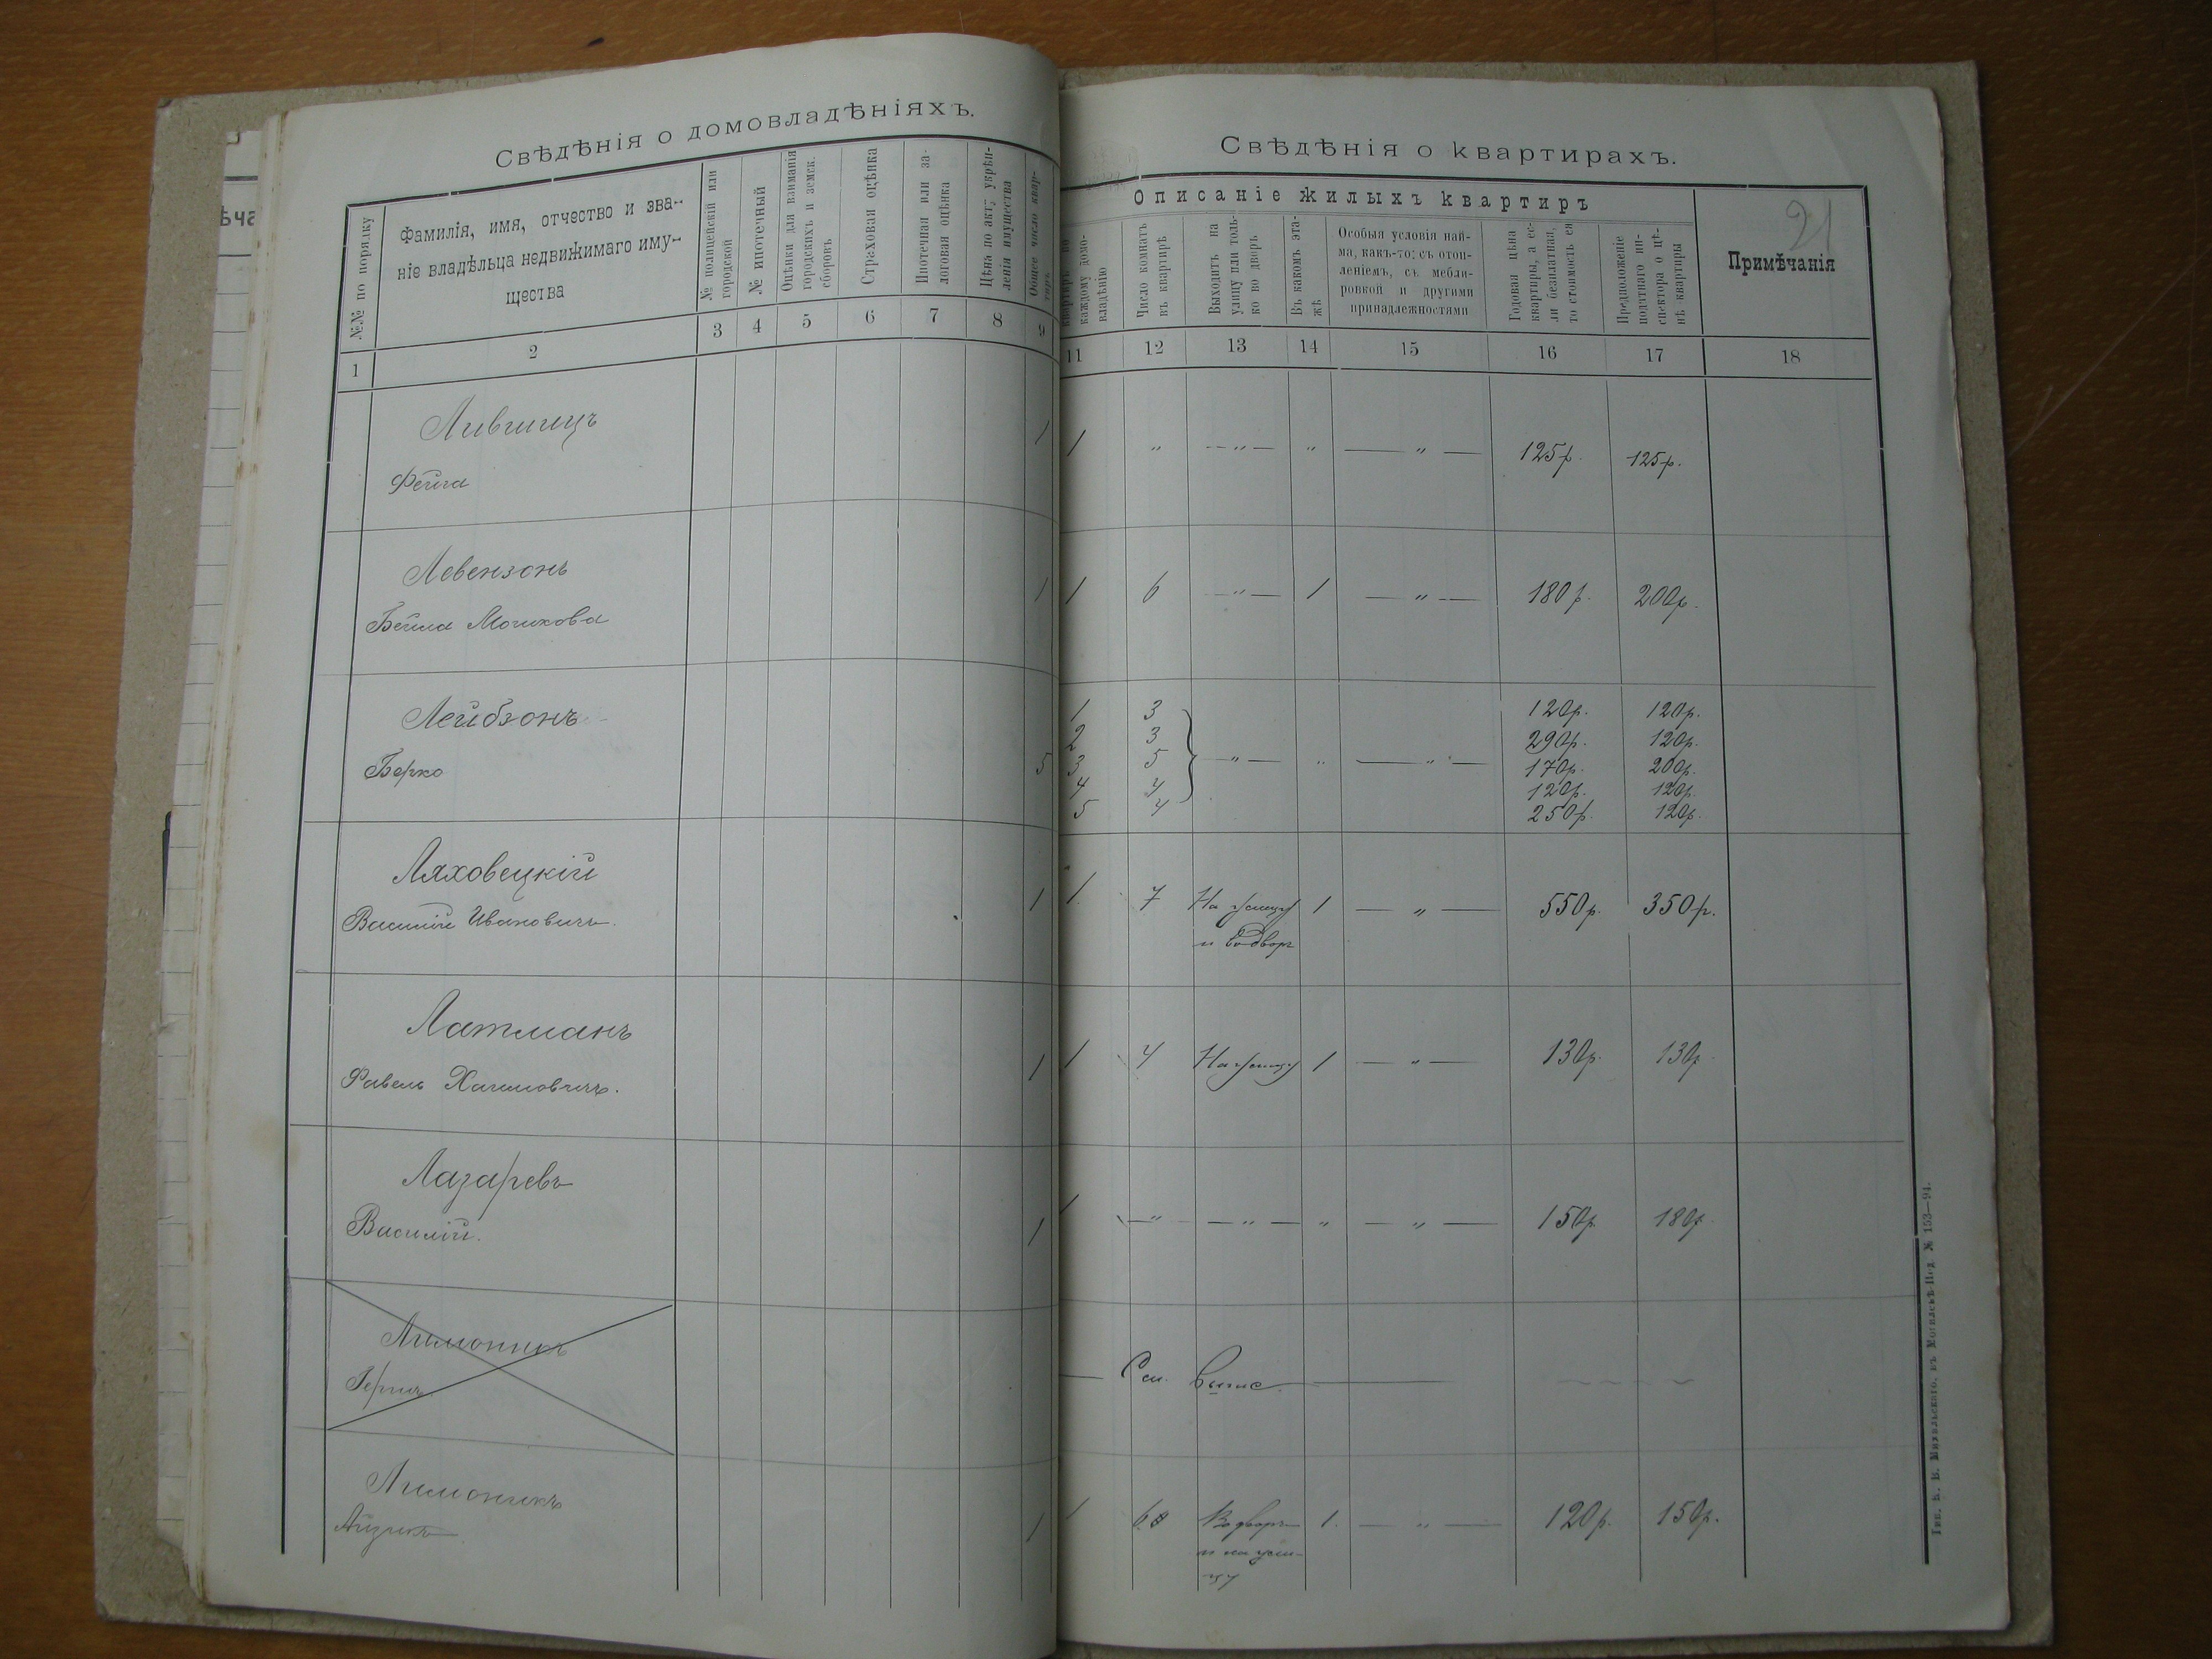 Свѣдѣнія о домовладѣніяхъ.
№№ по порядку
Фамилія, имя, отчество и зва-
ніе владѣльца недвижимаго иму-
щества
№ полицейскій или
городской
№ ипотечный
Оцѣнки для взиманія
городскихъ и земск.
сборовъ
Страховая оцѣнка
Ипотечная или за-
логовая оцѣнка
Цѣна по акт. укрѣп-
ленія имущества
Общее число квар-
1 2 3 4 5 6 7 8 9
Лившицъ 1
Фейга
Левензонъ 1
Бейла Мошкова
Лейбзонъ
Берко 5
Ляховецкій
Василій Ивановичъ. 1
Латманъ
Фавель Хаимовичъ. 1
Лазаревъ
Василій. 1
Лимоникъ
Герцъ
Лимоникъ
Айзикъ 1
Свѣдѣнія о квартирахъ.
21
Описаніе жилыхъ квартиръ
квартиръ по
каждому домо-
владѣнію
Число комнатъ
въ квартирѣ
Выходитъ на
улицу или толь-
ко во дворъ
Въ какомъ эта-
жѣ
Особыя условія най-
ма, какъ-то: съ отоп-
леніемъ, съ мебли-
ровкой и другими
принадлежностями
Годовая цѣна
квартиры, а ес-
ли безплатная,
то стоимость ея
Предположеніе
податнаго ин-
спектора о цѣ-
нѣ квартиры
Примѣчанія
11 12 13 14 15 16 17 18
1 " — " — " — " — 125р. 125р.
1 6 — " — 1 — " — 180р. 200р.
1 3 120р. 120р.
2 3 290р. 120р.
3 5 — " — " — " — 170р. 200р.
4 4 120р. 120р.
5 4 250р. 120р.
1 7 На улицу 1 — " — 550р. 350р.
и во дворъ
1 4 На улицу 1 — " — 130р. 130р.
1 — " — — " — " — " — 150р. 180р.
См. выше.
1 6 Во дворъ 1. — " — 120р. 150р.
и на ули-
цу
въ Могилевѣ-Под. № 153—94.